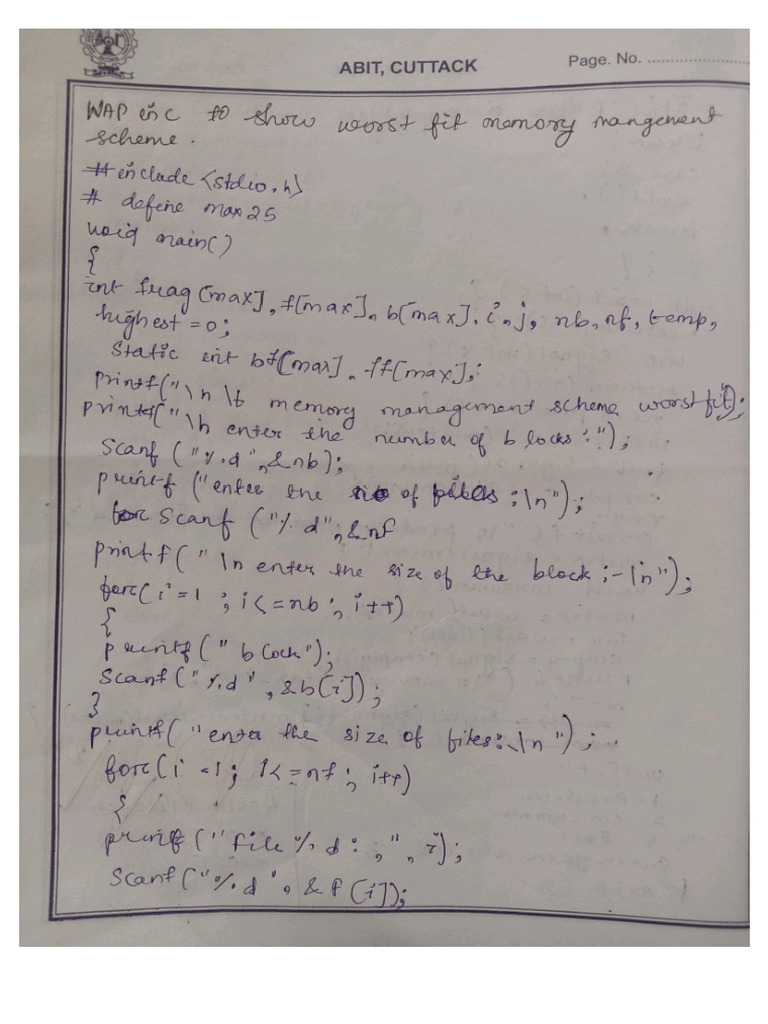 ABIT, CUTTACK
Page. No. ........................
WAP in c to show worst fit memory mangement
scheme.
#include <stdio.h>
# define max 25
void main()
{
int frag [max], f[max], b[max], i, j, nb, nf, temp,
highest = 0;
static int bf[max], ff[max];
printf("\n \t memory management scheme worst fit);
printf("\n enter the number of blocks:");
scanf ("%d", &nb);
printf ("enter the no of files :\n");
scanf ("%d", &nf
printf (" \n enter the size of the block :-\n");
for(i=1 ; i<=nb ; i++)
{
printf (" block");
scanf ("%d" , &b[i]);
}
printf( "enter the size of files:\n");
for(i =1; i<=nf ; i++)
{
printf ("file %d : ,", i);
scanf ("%d ", & f [i]);